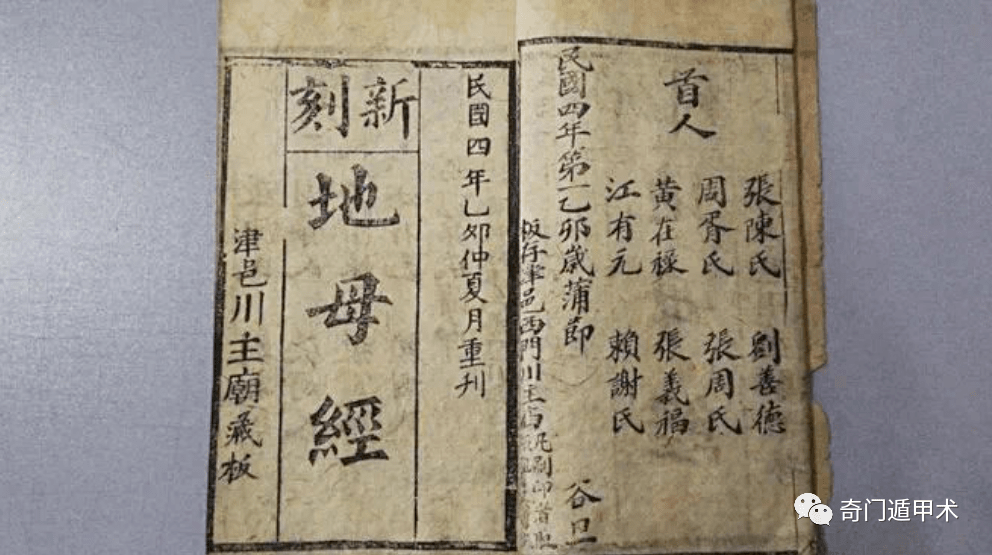 首人
張陳氏 劉善德
周胥氏 張周氏
黄在祿 張義福
江有元 賴謝氏
民國四年第一乙卯歲蒲節 谷旦
板存津邑西門川主
凡刷印者
民國四年乙卯仲夏月重刊
新刻
地母經
津邑川主廟藏板
奇门遁甲术